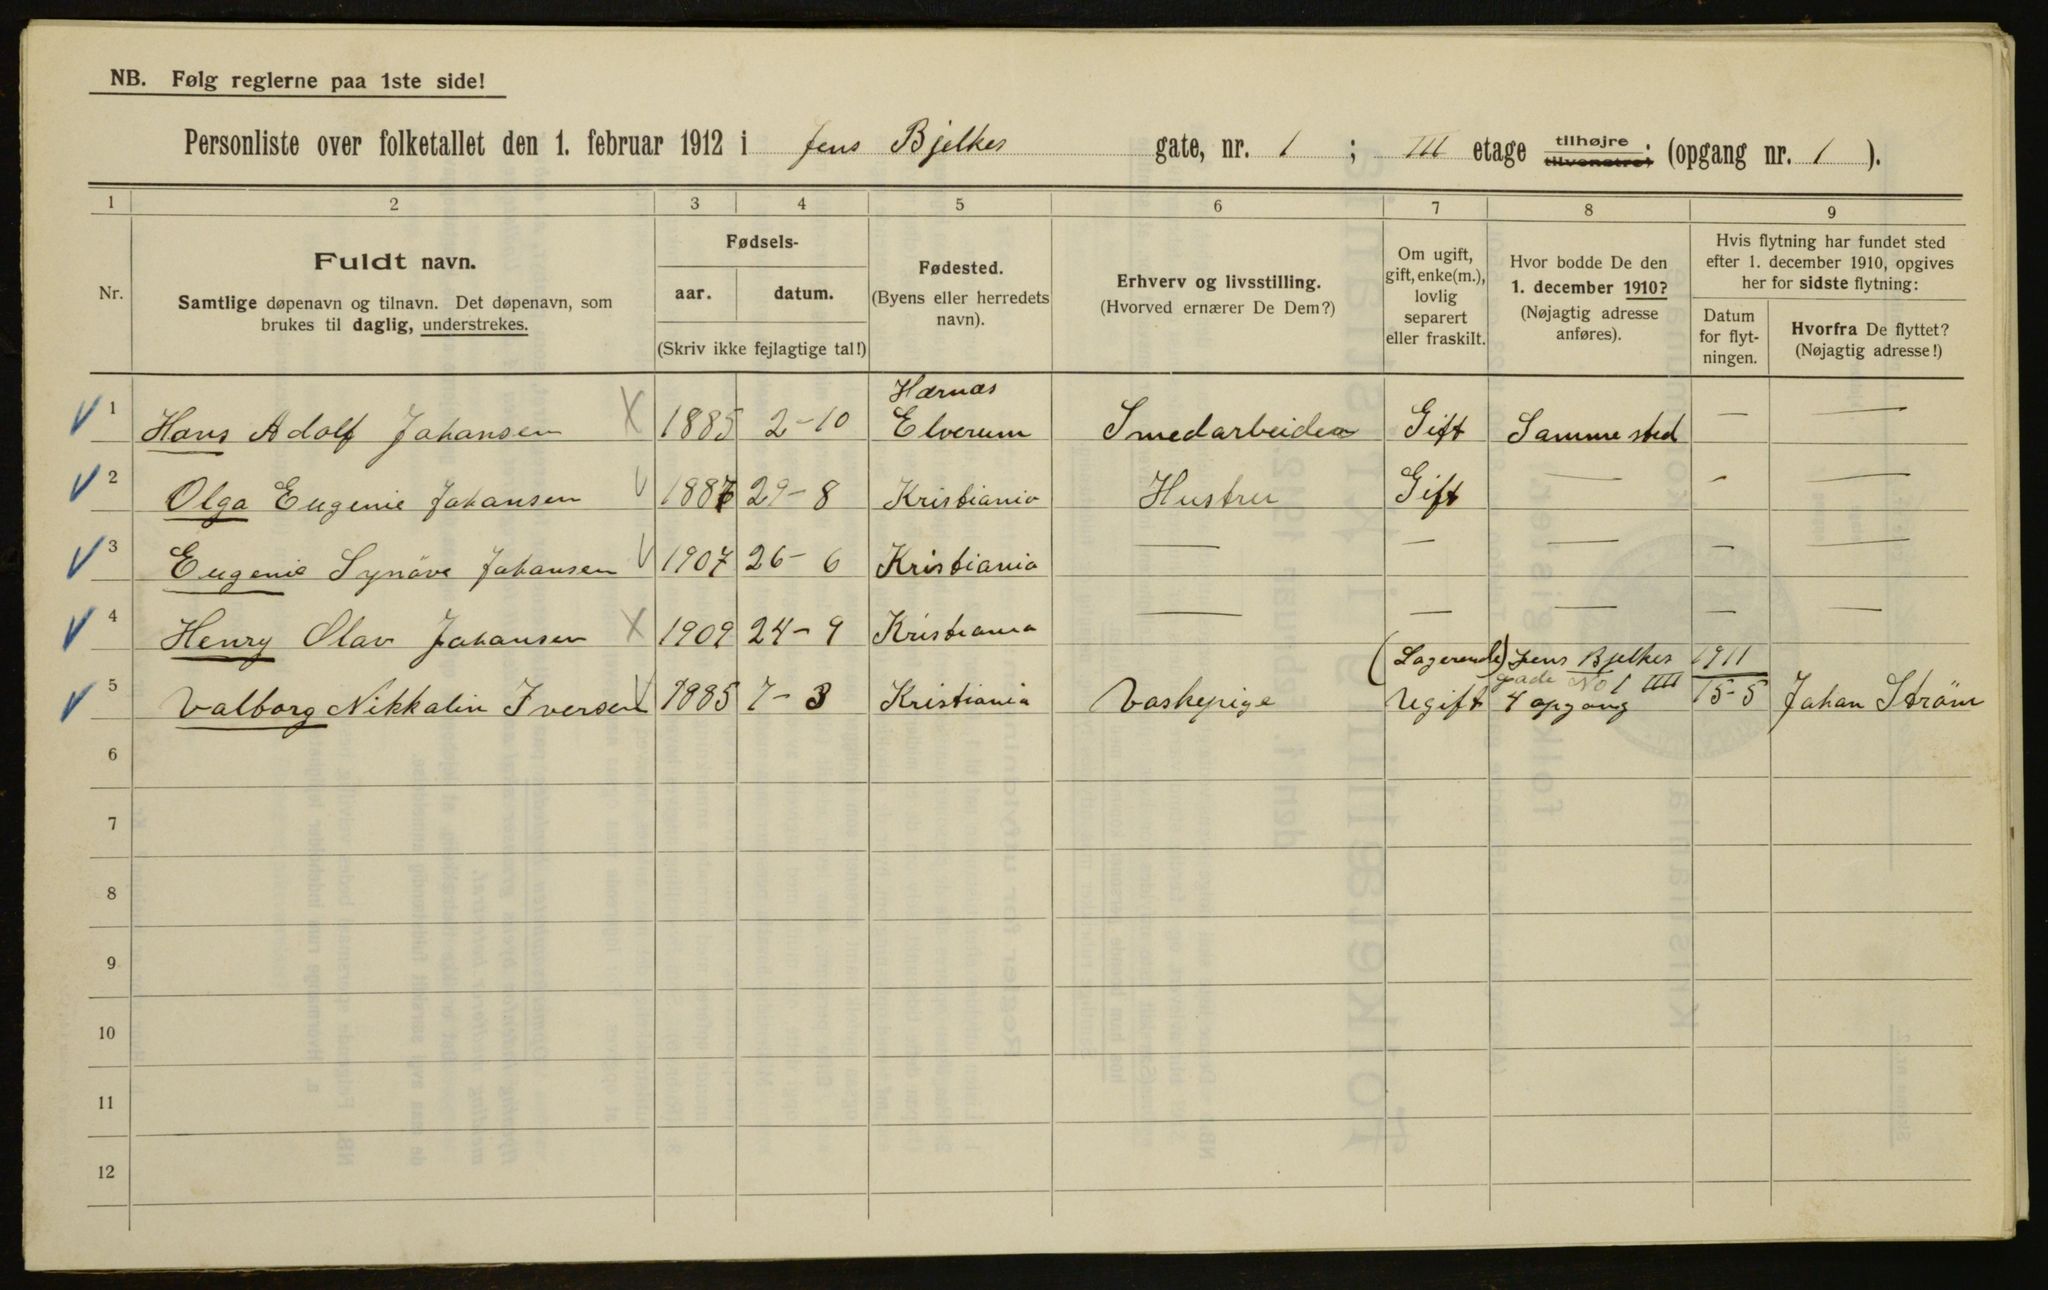 NB. Følg reglerne paa 1ste side!
Personliste over folketallet den 1. februar 1912 i Jens Bjelkes gate, nr. 1 ; III etage tilhøjre, tilvenstre, (opgang nr. 1 ).
1 2 3 4 5 6 7 8 9
Nr.
Fuldt navn.
Samtlige døpenavn og tilnavn. Det døpenavn, som
brukes til daglig, understrekes.
Fødsels-
aar. datum.
(Skriv ikke fejlagtige tal!)
Fødested.
(Byens eller herredets
navn).
Erhverv og livsstilling.
(Hvorved ernærer De Dem?)
Om ugift,
gift, enke(m.),
lovlig
separert
eller fraskilt.
Hvor bodde De den
1. december 1910?
(Nøjagtig adresse
anføres).
Hvis flytning har fundet sted
efter 1. december 1910, opgives
her for sidste flytning:
Datum
for flyt-
ningen.
Hvorfra De flyttet?
(Nøjagtig adresse!)
Hærnæs
1 Hans Adolf Johansen X 1885 2-10 Elverum Smedarbeider Gift Samme sted — —
2 Olga Eugenie Johansen V 1887 29-8 Kristiania Hustru Gift — - —
3 Eugenie Synöve Johansen V 1907 26-6 Kristiania — — — — —
4 Henry Olav Johansen X 1909 24-9 Kristiania — — — — —
(Lagerende) Jens Bjelkes 1911
gade No 1 IIII
5 Valborg Nikkalin Iversen V 1885 7-3 Kristiania Vaskepige Ugift 4 opgang 15-5 Johan Ström
6
7
8
9
10
11
12